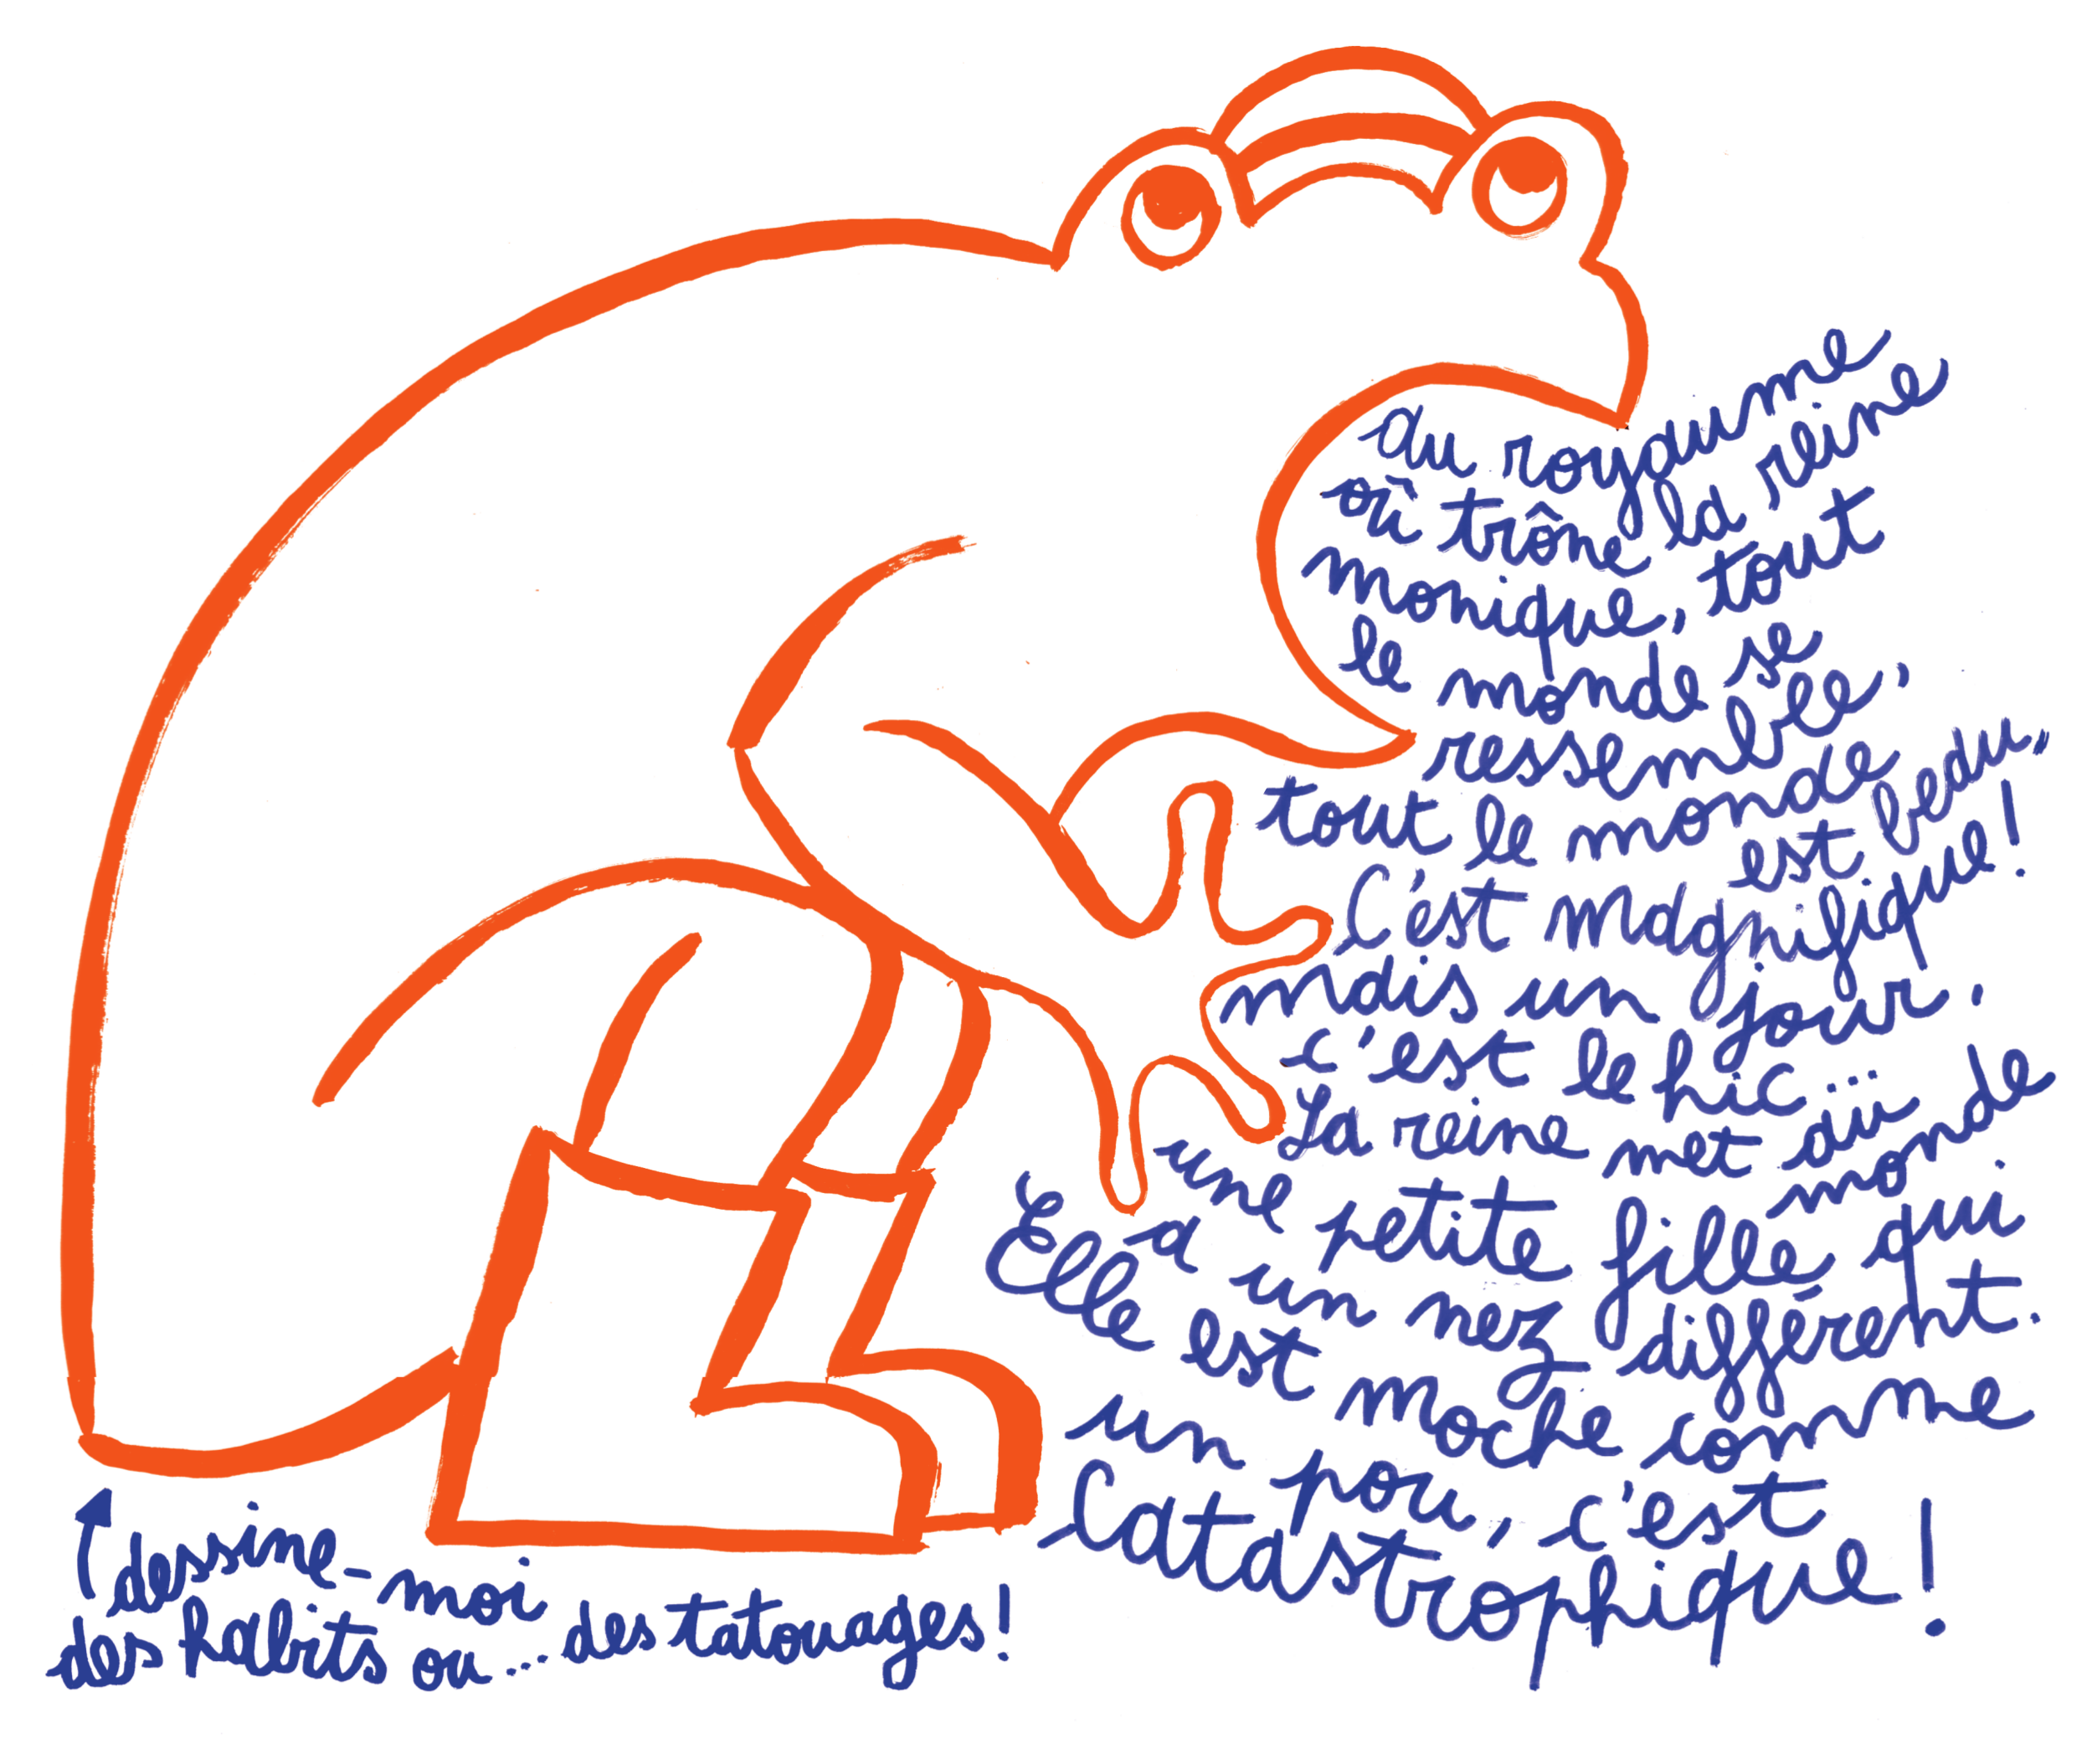 Au royaume
où trône la reine
monique, tout
le monde se
ressemble,
tout le monde
est beau,
C'est magnifique!
mais un jour.
c'est le hic...
La reine met au monde
une petite fille qui
a un nez différent.
Elle est moche comme
un pou, c'est
Catastrophique!
dessine-moi
des habits ou... des tatouages!